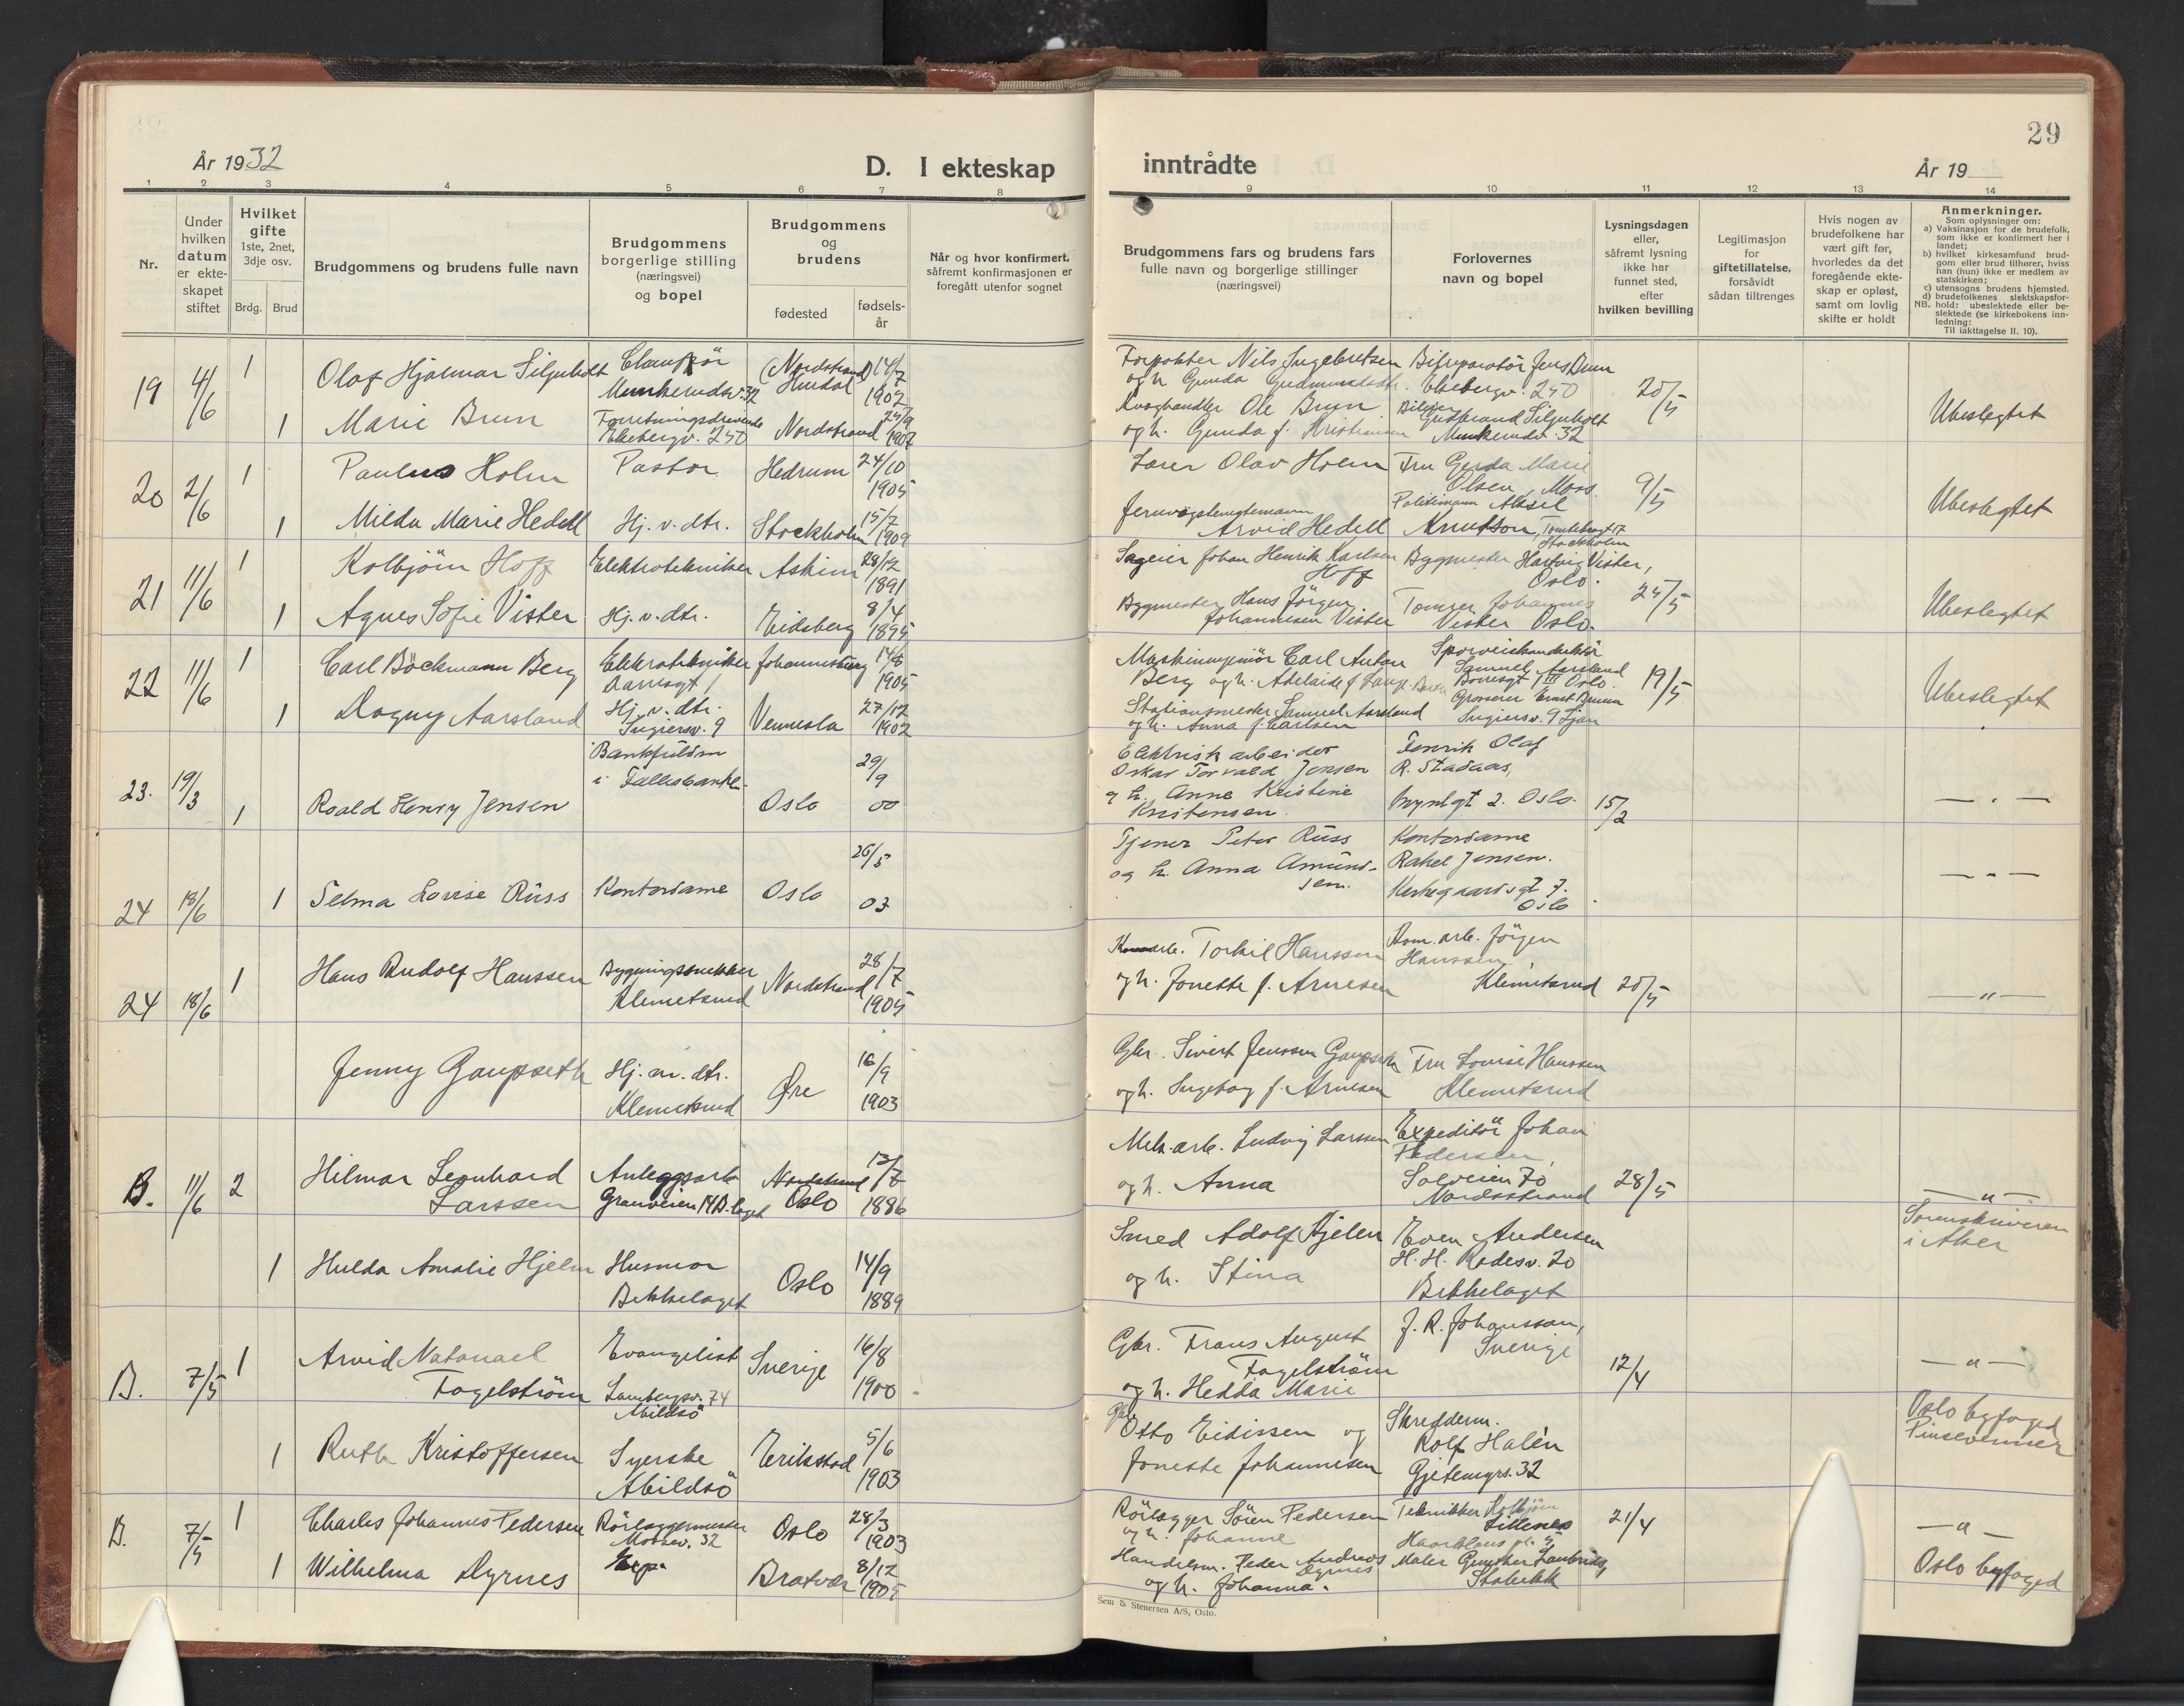 29
År 1932
D. I ekteskap
inntrådte
År 19
1 2 3 4 5 6 7 8 9 10 11 12 13 14
Nr.
Under
hvilken
datum
er ekte-
skapet
stiftet
Hvilket
gifte
1ste, 2net,
3dje osv.
Brdg. Brud
Brudgommens og brudens fulle navn
Brudgommens
borgerlige stilling
(næringsvei)
og bopel
Brudgommens
og
brudens
fødested
fødsels-
år
Når og hvor konfirmert,
såfremt konfirmasjonen er
foregått utenfor sognet
Brudgommens fars og brudens fars
fulle navn og borgerlige stillinger
(næringsvei)
Forlovernes
navn og bopel
Lysningsdagen
eller,
såfremt lysning
ikke har
funnet sted,
efter
hvilken bevilling
Legitimasjon
for
giftetillatelse,
forsåvidt
sådan tiltrenges
Hvis nogen av
brudefolkene har
vært gift før,
hvorledes da det
foregående ekte-
skap er opløst,
samt om lovlig
skifte er holdt
Anmerkninger.
Som oplysninger om:
a) Vaksinasjon for de brudefolk,
som ikke er konfirmert her i
landet;
b) hvilket kirkesamfund brud-
gom eller brud tilhører, hviss
han (hun) ikke er medlem av
statskirken;
c) utensogns brudens hjemsted.
d) brudefolkenes slektskapsfor-
NB. hold: ubeslektede eller be-
slektede (se kirkebokens inn-
ledning:
Til iakttagelse II. 10).
19 4/6 1 Olaf Hjalmar Siljuholt
Munkerudv. 32
(Nordstrand)
Hurdal
14/7
1902
Nils Ingebretsen
og h. Gunda
Jens Brun
Ekebergv. 250
20/5
Ubeslegtet
1 Marie Brun
Forretningsdrivende
Ekebergv. 250
Nordstrand
1907
Ole Brun
og h. Gunda f. Kristiansen
Gudbrand Siljuholt
Munkerudv. 32
20 2/6 1 Paulus Holm
Pastor
Hedrum
24/10
1905
Lærer Olav Holm
Fru Gerda Marie
Olsen, Moss.
9/5
Ubeslegtet
1 Milda Marie Hedell
Hj. v. dtr.
Stockholm
15/7
1909
Arvid Hedell
Politimann Aksel
Knutson, Tomtebogt 17
Stockholm
21 11/6 1 Kolbjörn Hoff
Elektrotekniker
Askim
28/12
1891
Sageier Johan Henrik Karlsen
Hoff
Bygmester Hartvig Vister,
Oslo.
24/5
Ubeslegtet
1 Agnes Sofie Vister
Hj. v. dtr.
Eidsberg
8/4
1895
Bygmester Hans Jörgen
Johannesen Vister
Tömrer Johannes
Vister Oslo.
22 11/6 1 Carl Böckmann Berg
Elektrotekniker
Johannesburg
1905
Maskiningeniör Carl Anton
Berg og h. Adelaide f.
Samuel Aarsland
Oslo.
19/5
Ubeslegtet
1 Dagny Aarsland
Hj. v. dtr.
Ingiersv. 9
Vennesla
27/12
1902
Stationsmester Samuel Aarsland
og h. Anna f. Carlsen
Grosserer Ernst
Ingiersv. 9 Ljan
23. 19/3 1 Roald Henry Jensen
Bankfuldm
i Fællesbanken.
Oslo
29/9
00
Elektrisk arbeider
Oskar Torvald Jensen
og h. Anne Kristine
Kristensen.
Fenrik Olaf
R. Stadaas,
Myntgt 2. Oslo.
15/2
— „ —
24 18/6 1 Selma Lovise Russ
Kontordame
Oslo
26/5
03
Tjener Peter Russ
og h. Anna Amund-
sen.
Kontordame
Rakel Jensen.
Kirkegaardsgt 7.
Oslo
— „ —
24 18/6 1 Hans Rudolf Hanssen
Bygningssnekker
Klemetsrud
Nordstrand
28/7
1905
Torkil Hanssen
og h. Jonette f. Arnesen
Kom. arb. Jörgen
Hanssen,
Klemetsrud
20/5
— „ —
Jenny Gaupseth
Hj. m. dtr.
Klemetsrud
Øre
16/9
1903
Gbr. Sivert Jenssen Gaupseth
og h. Ingeborg f. Arnesen
Fru Lovise Hanssen
Klemetsrud
B. 11/6 2 Hilmar Leonhard
Larssen
Anleggsarb
Granveien 14 B.laget
Nordstrand
Oslo
1886
Mek. arb. Ludvig Larssen
og h. Anna
Expeditör Johan
Pedersen,
Solveien 70
Nordstrand
28/5
— „ —
1 Hulda Amalie Hjelm
Husmor
Bekkelaget
Oslo
14/9
1889
Smed Adolf Hjelm
og h. Stina
Even Andersen
H. H. Rodesv. 20
Bekkelaget
Sorenskriveren
i Aker
B. 7/5 1 Arvid Natanael
Fogelström
Evangelist
Lambergsv. 74
Abildsö
Sverige
16/8
1900
Gbr. Frans August
Fogelström
og h. Hedda Marie
J. R. Johansson,
Sverige
12/4
— „ —
1 Ruth Kristoffersen
Syerske
Abildsö
Eriksstad
5/6
1903
Otto Eidissen og
Jonette Johannesen
Skredderm.
Rolf Halén
Gjetemyrs. 32
Oslo byfoged
Pinsevenner
B. 7/5 1 Charles Johannes Pedersen
Rörleggermester
Mossev. 32
Oslo
28/3
1903
Rörlegger Sören Pedersen
og h. Johanne
Tekniker Kolbjörn
21/4
— „ —
1 Wilhelma Dyrnes
Exp.
Bratvær
8/12
1905
Handelsm. Peder Andreas
Dyrnes
og h. Johanna.
Maler
Stabekk
Oslo byfoged
Sem & Stenersen A/S, Oslo.